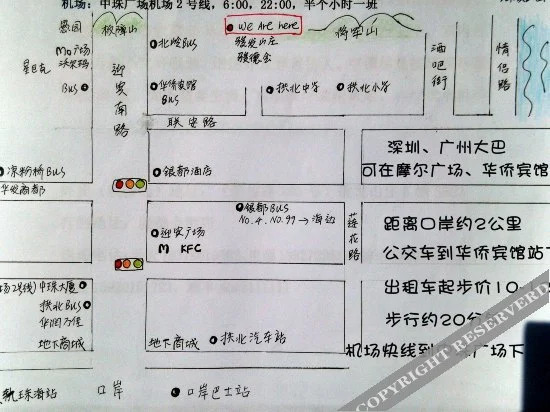 机场：中珠广场机场2号线，6:00，22:00，半个小时一班
板障山
We Are here
将军山
强发山庄
骏德会
酒吧街
情侣路
星巴克
Mo广场
沃尔玛
BUS
迎宾南路
北岭BUS
华侨宾馆
BUS
拱北中学
拱北小学
联安路
凉粉桥BUS
华发商都
银都酒店
深圳、广州大巴
可在摩尔广场、华侨宾馆
迎宾广场
M KFC
银都BUS
NO.4, NO.99→海边
莲花路
距离口岸约2公里
公交车到华侨宾馆站下
场2号线)中珠大厦
拱北BUS
华润万佳
地下商城
地下商城
拱北汽车站
出租车起步价10
步行约20分
机场快线到
广场下
珠海站
口岸
口岸巴士站
COPYRIGHT RESERVED